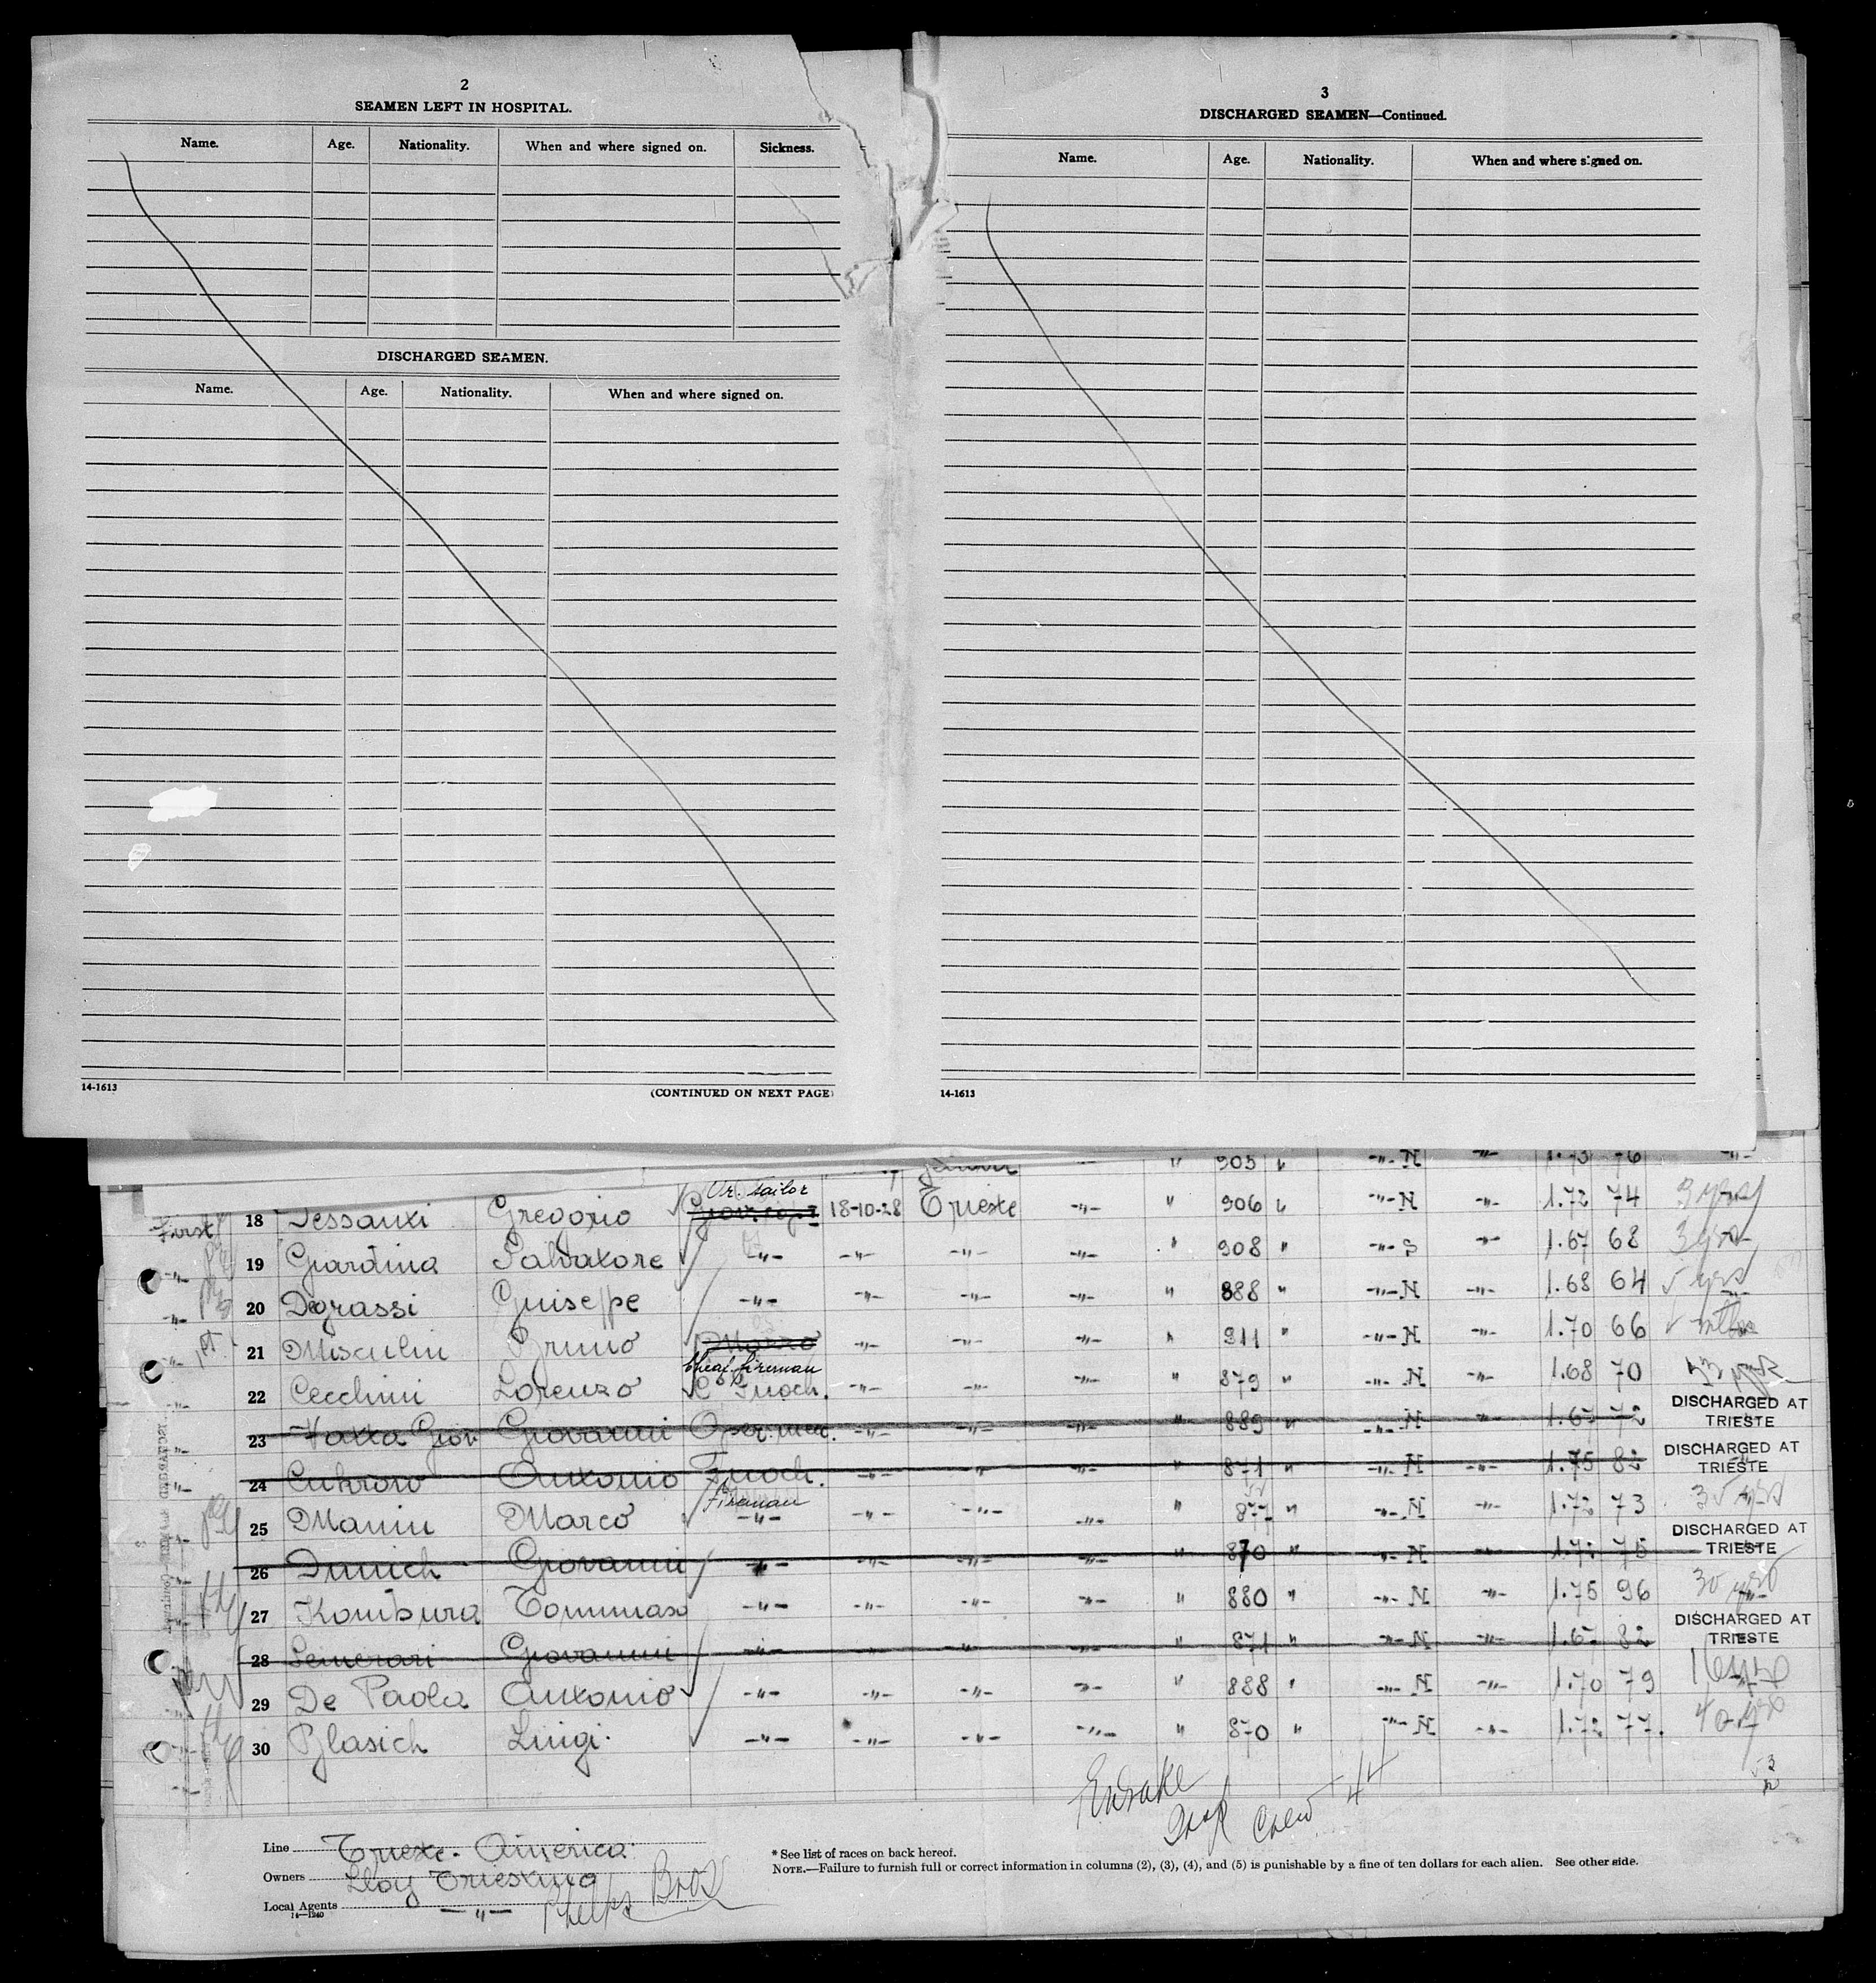 2
SEAMEN LEFT IN HOSPITAL.
Name. Age. Nationality. When and where signed on. Sickness.
DISCHARGED SEAMEN.
Name. Age. Nationality. When and where signed on.
14-1613 (CONTINUED ON NEXT PAGE)
3
DISCHARGED SEAMEN—Continued.
Name. Age. Nationality. When and where signed on.
14-1613
" 905 " -"- N -"- 1.73 76 -"-
Or. sailor
First 18 Tessauxi Gregorio 18-10-28 Trieste -"- " 906 " -"- N -"- 1.72 74 3 yrs
-"- 19 Giardina Salvatore -"- -"- -"- -"- " 908 " -"- S -"- 1.67 68 3 yrs
-"- 20 Degrassi Guiseppe -"- -"- -"- -"- " 888 " -"- N -"- 1.68 64 5 yrs
-"- 21 Musculin Bruno Mozzo -"- -"- -"- " 911 " -"- N -"- 1.70 66
Cheaf fireman
-"- 22 Cecchini Lorenzo C° Fuoch. -"- -"- -"- " 879 " -"- N -"- 1.68 70
DISCHARGED AT
-"- 23 Giovanni Oper. mec. -"- -"- -"- " 889 " -"- N -"- 1.67 72 TRIESTE
DISCHARGED AT
-"- 24 Antonio Fuoch. -"- -"- -"- " 871 " -"- N -"- 1.75 82 TRIESTE
fireman
-"- 25 Manin Marco -"- -"- -"- -"- " 877 " -"- N -"- 1.72 73 35 yrs
DISCHARGED AT
-"- 26 Dunich Giovanni -"- -"- -"- -"- " 870 " -"- N -"- 1.72 75 TRIESTE
-"- 27 Kombura Tommaso -"- -"- -"- -"- " 880 " -"- N -"- 1.75 96 30 yrs
DISCHARGED AT
28 Semerari Giovanni -"- -"- -"- -"- " 871 " -"- N -"- 1.67 82 TRIESTE
29 De Paola Antonio -"- -"- -"- -"- " 888 " -"- N -"- 1.70 79 16 yrs
-"- 30 Blasich Luigi. -"- -"- -"- -"- " 870 " -"- N -"- 1.72 77. 40 yrs
Crew 44
Line Trieste-America
Owners Lloy Triestino
Local Agents -"- Phelps Bros
14—1240
* See list of races on back hereof.
NOTE.—Failure to furnish full or correct information in columns (2), (3), (4), and (5) is punishable by a fine of ten dollars for each alien. See other side.